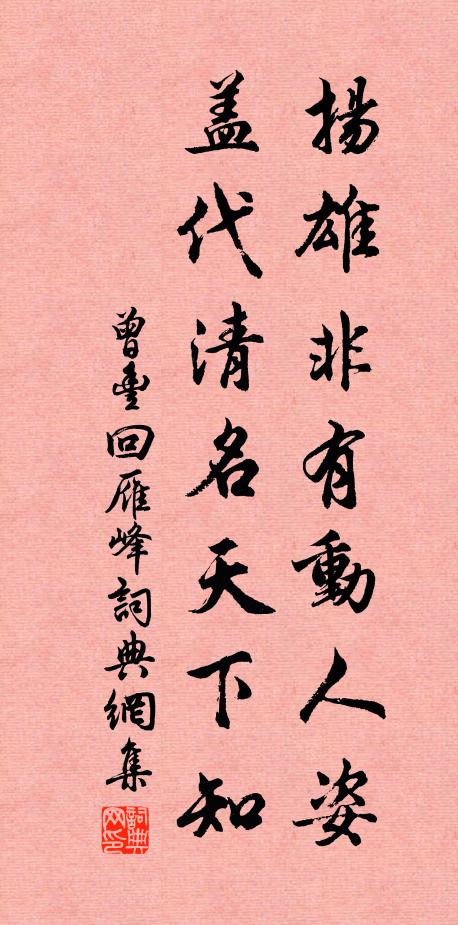 揚雄非有動人姿
蓋代清名天下知
曾豐回雁峰詞典網集
詞典网印